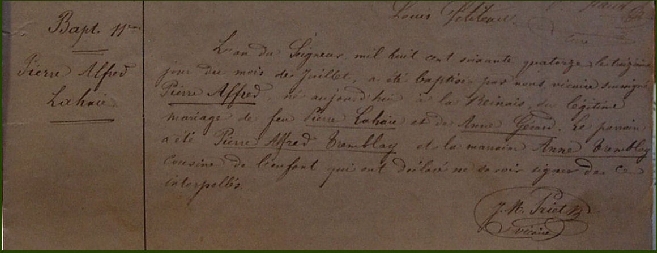 Louis
Bapt. 11me
Pierre Alfred
Lahaie
L'an du Seigneur, mil huit cent soixante quatorze, le
jour du mois de Juillet, a été baptisé par nous vicaire soussigné,
Pierre Alfred, né aujourd'hui à la Minais, du légitime
mariage de feu Pierre Lahaie et de Anne Gérard. Le parrain
a été Pierre Alfred Tremblay et la marraine Anne Tremblay
cousine de l'enfant qui ont déclaré ne savoir signer de ce
interpellés.
J. N.
vicaire